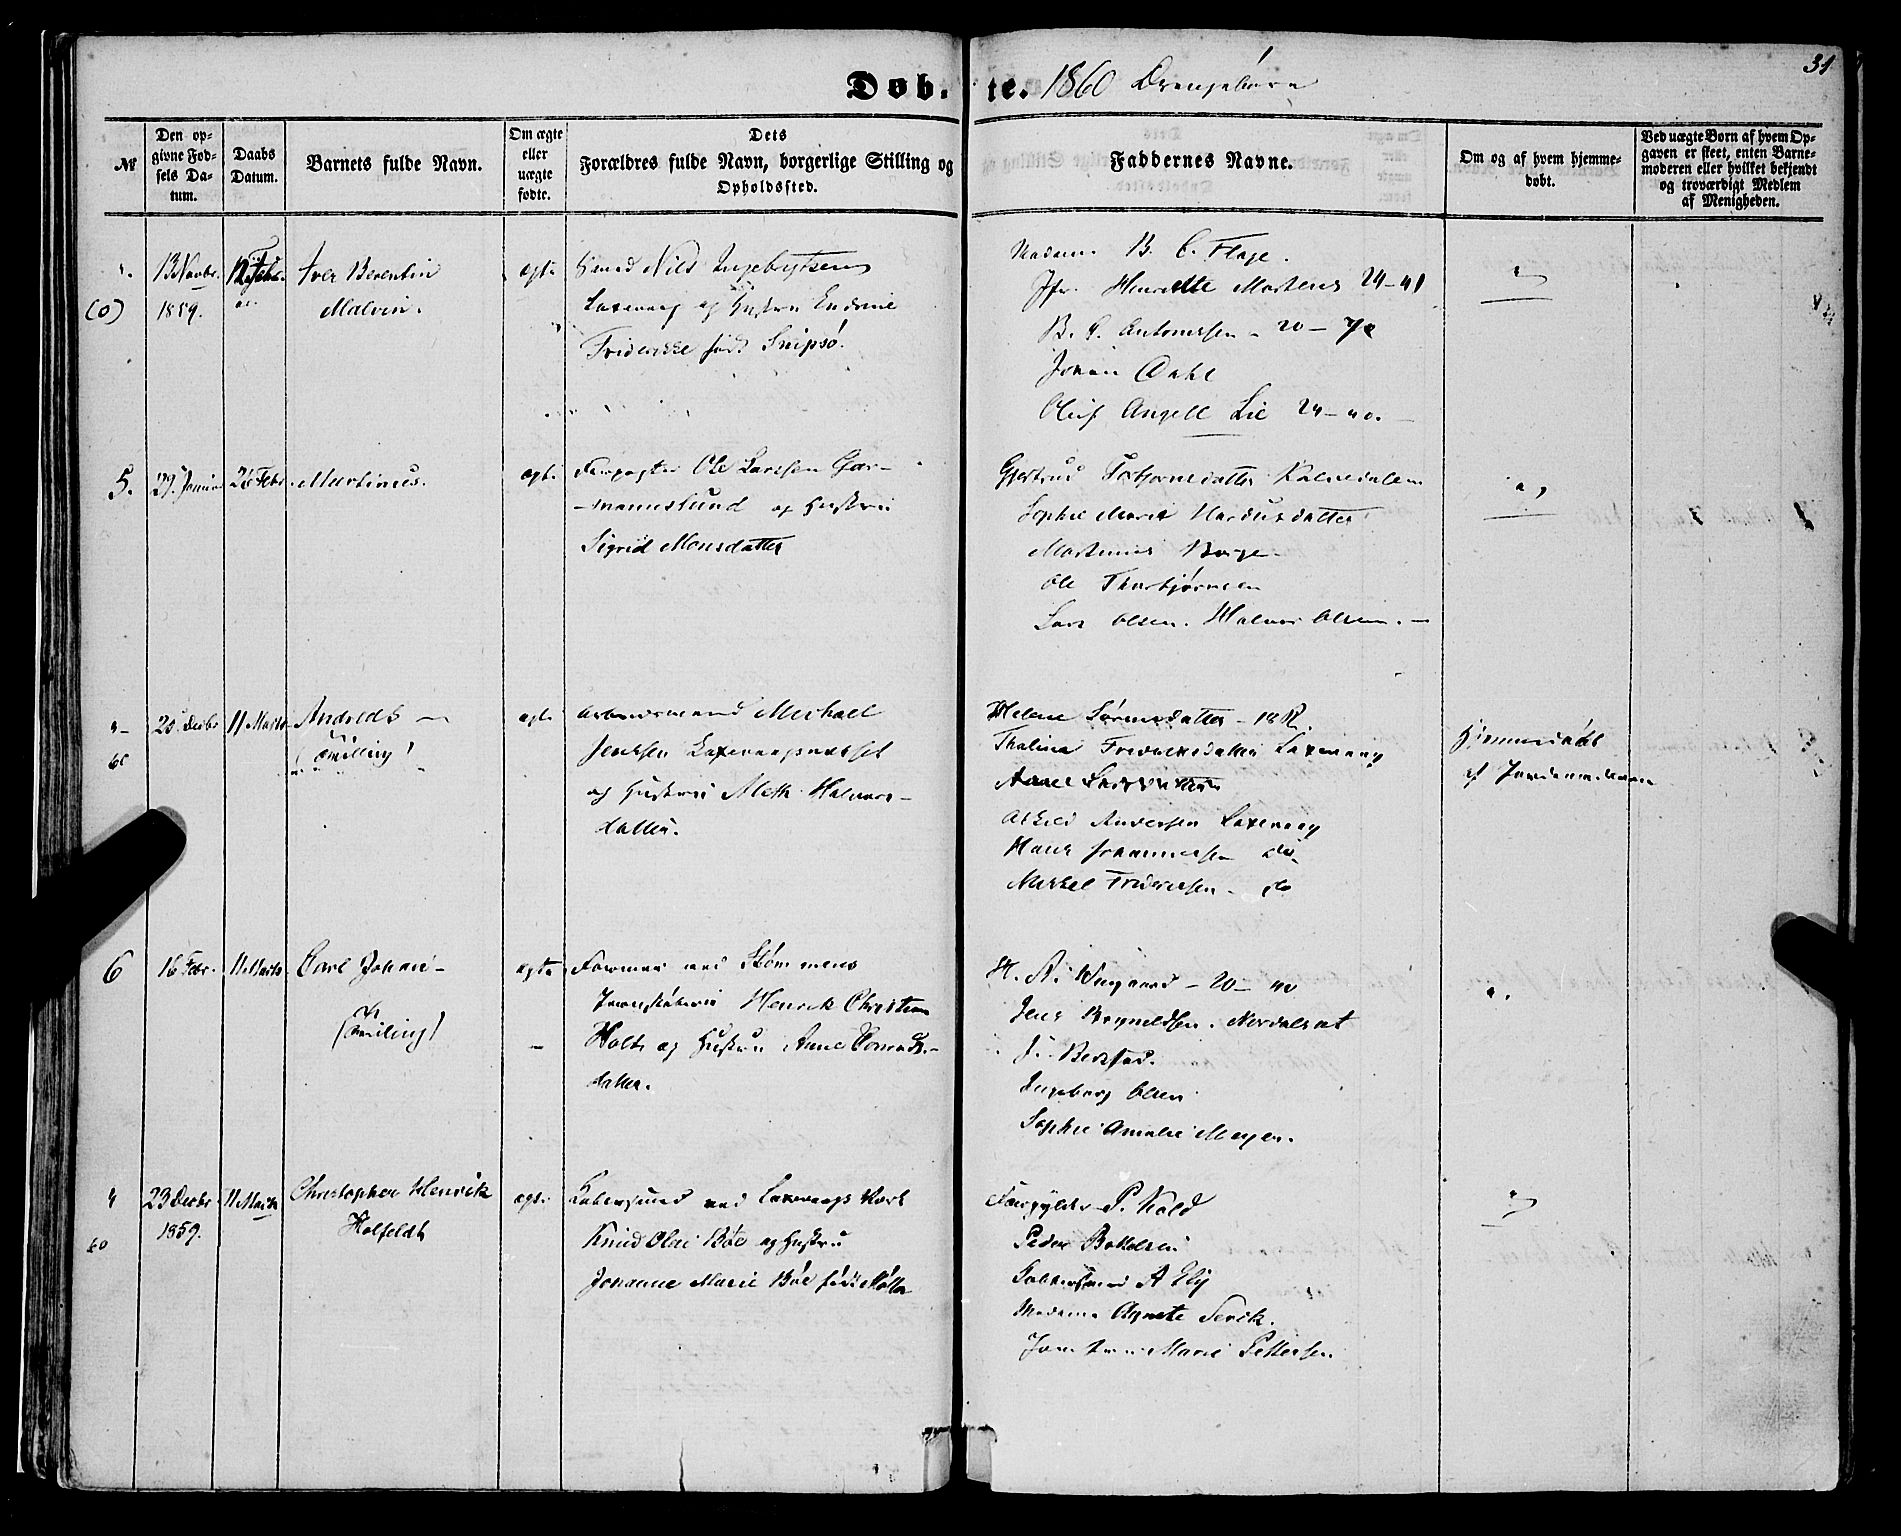 31
Døb-te. 1860 Drengebørn
№
Den op-
givne Fød-
sels Da-
tum.
Daabs
Datum.
Barnets fulde Navn.
Om ægte
eller
uægte
fødte.
Dets
Forældres fulde Navn, borgerlige Stilling og
Opholdssted.
Faddernes Navne.
Om og af hvem hjemme-
døbt.
Ved uægte Børn af hvem Op-
gaven er skeet, enten Barne-
moderen eller hvilket bekjendt
og troværdigt Medlem
af Menigheden.
(0)
13 Novbr.
1859.
12 Febr.
Iver Berentin
Malvin.
ægte
Nils Ingebrigtsen
Laxevaag og Hustru Endrine
Friderikke født Snipsø.
Madam B. C. Flage.
Jfr. Henrette Martens 24-41
B. C. Antonessen - 20 -
Johan Dahl
Oluf Angell Lie 24-40.
5.
29. Januar
26 Febr.
Martinus.
ægte
Ole Larssen Gar-
mannslund og Hustru
Sigrid Monsdatter
Gjertrud Torbjørnsdatter Kalvedalen
Sophie Marie
Martinus Borge
Ole Thorbjørnsen
Lars Olsen. Halvor Olsen.
60
20 Decbr
11 Marts
Andreas
(Tvilling)
ægte
Arbeidsmand Michael
Jenssen Laxevaagnæsset
og Hustru Meth Halvors-
datter.
Helene Sørensdatter - 18 R.
Thalina Fredriksdatter Laxevaag
Anne Larsdatter
Askild Andersen Laxevaag
Hans Johannessen do
Mikkel Fredriksen - do
Hjemmedøbt
af Jordemoderen
6
16 Febr.
11 Marts
Carl Johan -
(Tvilling)
ægte
Formand ved Strømmens
Jernstøberi Henrik Christian
Holt og Hustru Anne Conrads-
datter.
H. A. Wingaard - 20 - 40
Jens Brynildsen. Nordalsnt
J. Berstad.
Ingeborg Olsen
Sophie Amalie Meyer.
60
23 Decbr
1859.
11 Marts
Christopher Henrik
Holfeldt
ægte
Kobbersmed ved Laxevaags Værk
Knud Olai Bøe og Hustru
Johanne Marie Bøe født Møller
P. Kold
Peder Bottolsen
Kobbersmed A Ely
Madame Agnete Servik.
Jomfru Marie Pettersen